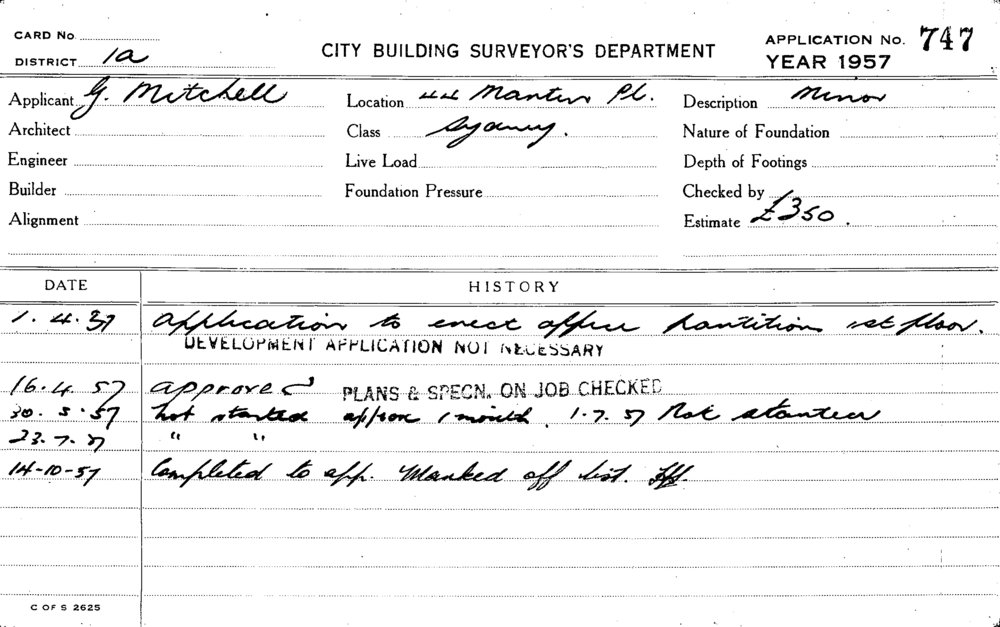 CARD No.
DISTRICT 1a
CITY BUILDING SURVEYOR'S DEPARTMENT
APPLICATION No. 747
YEAR 1957
Applicant G. Mitchell
Location 44 Martin Pl.
Description Minor
Architect
Class Sydney.
Nature of Foundation
Engineer
Live Load
Depth of Footings
Builder
Foundation Pressure
Checked by
Alignment
Estimate £350.
DATE HISTORY
1.4.57 Application to erect office partitions 1st floor.
DEVELOPMENT APPLICATION NOT NECESSARY
16.4.57 approved PLANS & SPECN. ON JOB CHECKED
30.5.57 not started approx 1 month. 1.7.57 Not started
23.7.57 " "
14-10-57 Completed to app. Marked off list.
C OF S 2625